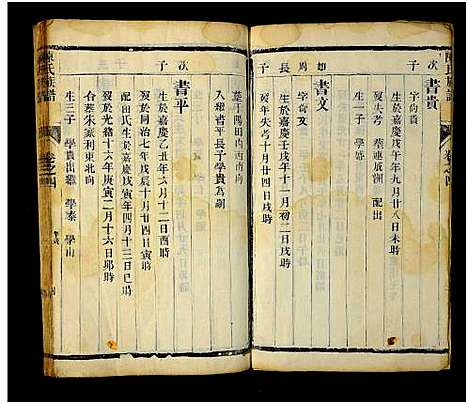 陳氏族譜
卷之四
次子
書貴
字尙貴
生於嘉慶戊午年九月廿八日未時
歿失考 配出
生一子 學
長子
書文
字尙文
生於嘉慶壬戌年十一月初二日戌時
歿年失考十月廿四日戌時
葬于陽田內西南向
入繼書平長子學貴為嗣
次子
書平
生於嘉慶乙丑年六月十二日酉時
歿於同治七年戊辰十月廿四日寅時
配田氏生於嘉慶 寅年四月十三日巳時
歿於光緒十六年庚寅二月十六日卯時
合葬朱家 東北向
生三子 學貴出繼 學泰 學山
陳氏族譜
卷之四